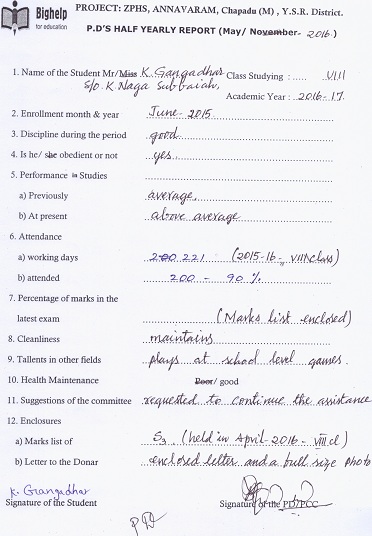 Bighelp
for education
PROJECT: ZPHS, ANNAVARAM, Chapadu (M) , Y.S.R. District.
P.D'S HALF YEARLY REPORT (May/ November- 2016.)
1. Name of the Student Mr/Miss K. Gangadhar Class Studying : ..... VIII
S/o. K. Naga Subbaiah, Academic Year : 2016-17.
2. Enrollment month & year June- 2015
3. Discipline during the period good
4. Is he/ she obedient or not yes.
5. Performance in Studies
a) Previously average,
b) At present above average
6. Attendance
a) working days 200 221 (2015-16 - VIII class)
b) attended 200 - 90 %
7. Percentage of marks in the
latest exam (Marks list enclosed)
8. Cleanliness maintains
9. Tallents in other fields plays at school level games.
10. Health Maintenance Poor/ good
11. Suggestions of the committee requested to continue the assistance
12. Enclosures
a) Marks list of S3 (held in April-2016 - VIII cl)
b) Letter to the Donar enclosed letter and a full size photo
K. Gangadhar
Signature of the Student Signature of the PD/PCC